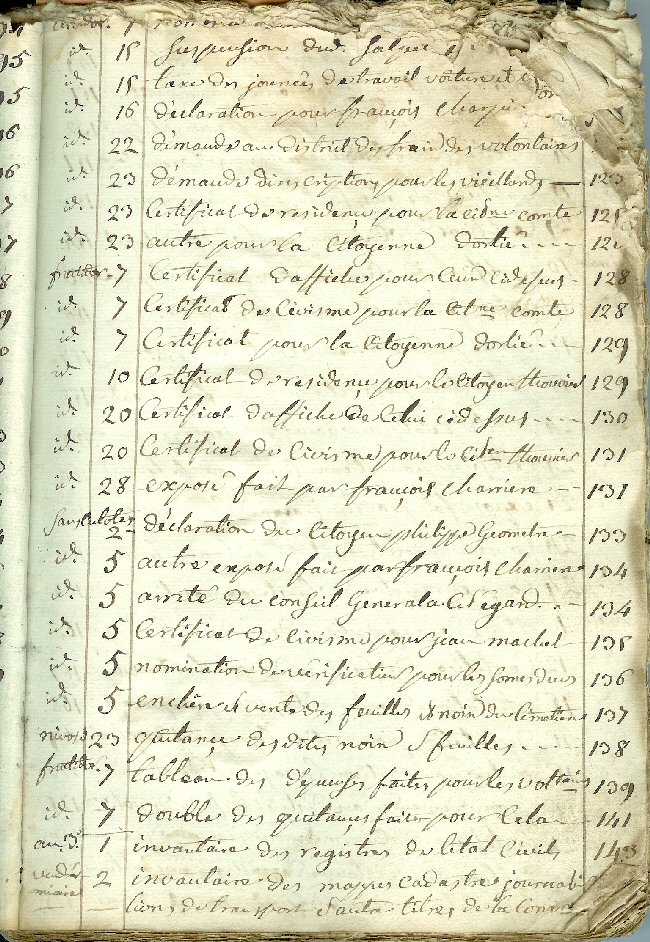 id. 15 Suspension dud. Salpet
id. 15 taxe des journés de travail voiture et
id. 16 déclaration pour françois Charriere
id. 22 démande au district des fraix des volontaires
id. 23 démande d'inscription pour les vieillards — 123
id. 23 Certificat de residençe pour la citne comte 125
id. 23 autre pour la Citoyenne dorlié 12
fructidor. 7 Certificat d'affiche pour ceux cidessus - 128
id. 7 Certificat de Civisme pour la Citne comte 128
id. 7 Certificat pour la Citoyenne dorlié - 129
id. 10 Certificat de residençe pour le Citoyen 129
id. 20 Certificat d'affiche de Celui cidessus - - 130
id. 20 Certificat de Civisme pour le Citen 131
id. 28 exposé fait par françois Charriere - 131
Sansculotes 2 déclaration du Citoyen philippe Geometre - 133
id. 5 autre exposé fait par françois Charriere 134
id. 5 arrêté du Conseil General a Cet Egard - - 134
id. 5 Certificat de Civisme pour jean maclet 135
id. 5 nomination de vérificateur pour les somes dues 136
id. 5 enchère et vente des feuilles et noix du 137
nivose 23 quitançe desdites noix & feuilles - - - 138
fructidor. 7 tableau des dépenses faites pour les voltaires 139
id. 7 double des quitançes faites pour Cela - 141
an 3e. 1 invantaire des registres de l'etat Civils 143
vendémiaire 2 invantaire des mappes Cadastre journal
tions de transport & autre titres de la Comm